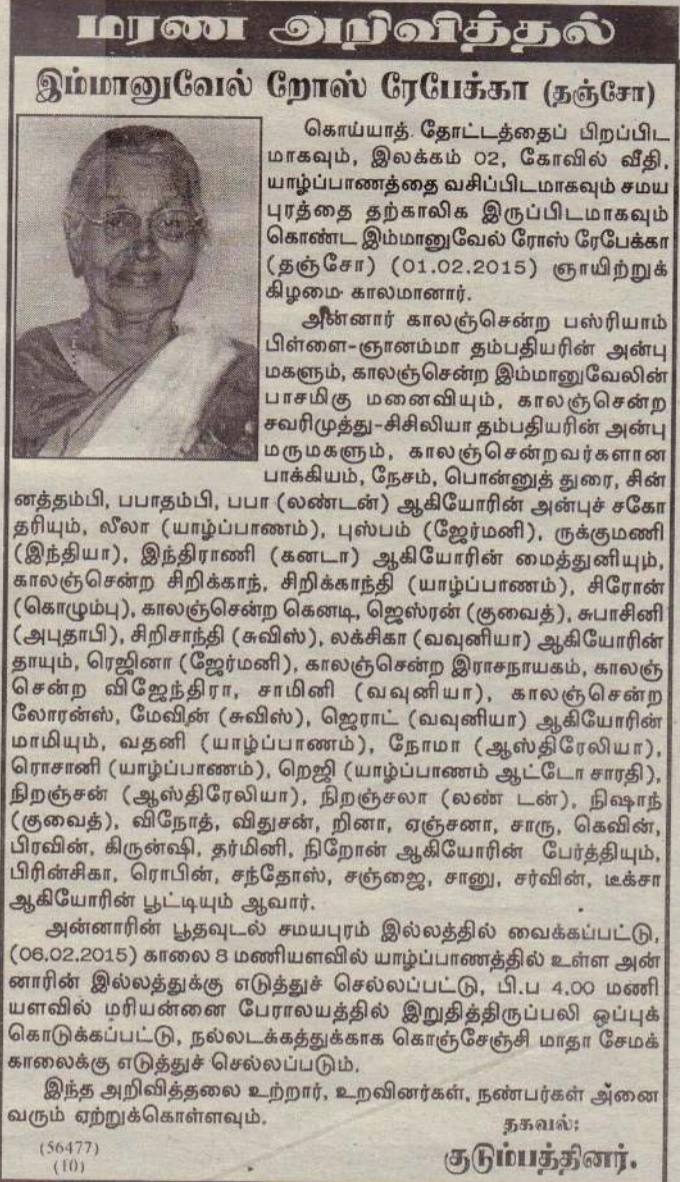 மரண அறிவித்தல்
இம்மானுவேல் றோஸ் ரேபேக்கா (தஞ்சோ)
கொய்யாத் தோட்டத்தைப் பிறப்பிட
மாகவும், இலக்கம் 02, கோவில் வீதி,
யாழ்ப்பாணத்தை வசிப்பிடமாகவும் சமய
புரத்தை தற்காலிக இருப்பிடமாகவும்
கொண்ட இம்மானுவேல் ரோஸ் ரேபேக்கா
(தஞ்சோ) (01.02.2015) ஞாயிற்றுக்
கிழமை காலமானார்.
அன்னார் காலஞ்சென்ற பஸ்ரியாம்
பிள்ளை-ஞானம்மா தம்பதியரின் அன்பு
மகளும், காலஞ்சென்ற இம்மானுவேலின்
பாசமிகு மனைவியும், காலஞ்சென்ற
சவரிமுத்து-சிசிலியா தம்பதியரின் அன்பு
மருமகளும், காலஞ்சென்றவர்களான
பாக்கியம், நேசம், பொன்னுத் துரை, சின்
னத்தம்பி, பபாதம்பி, பபா (லண்டன்) ஆகியோரின் அன்புச் சகோ
தரியும், லீலா (யாழ்ப்பாணம்), புஸ்பம் (ஜேர்மனி), ருக்குமணி
(இந்தியா), இந்திராணி (கனடா) ஆகியோரின் மைத்துனியும்,
காலஞ்சென்ற சிறிக்காந், சிறிக்காந்தி (யாழ்ப்பாணம்), சிரோன்
(கொழும்பு), காலஞ்சென்ற கெனடி, ஜெஸ்ரன் (குவைத்), சுபாசினி
(அபுதாபி), சிறிசாந்தி (சுவிஸ்), லக்சிகா (வவுனியா) ஆகியோரின்
தாயும், ரெஜினா (ஜேர்மனி), காலஞ்சென்ற இராசநாயகம், காலஞ்
சென்ற விஜேந்திரா, சாமினி (வவுனியா), காலஞ்சென்ற
லோரன்ஸ், மேவின் (சுவிஸ்), ஜெராட் (வவுனியா) ஆகியோரின்
மாமியும், வதனி (யாழ்ப்பாணம்), நோமா (ஆஸ்திரேலியா),
ரொசானி (யாழ்ப்பாணம்), றெஜி (யாழ்ப்பாணம் ஆட்டோ சாரதி),
நிறஞ்சன் (ஆஸ்திரேலியா), நிறஞ்சலா (லண் டன்), நிஷாந்
(குவைத்), விநோத், விதுசன், றினா, ஏஞ்சனா, சாரு, கெவின்,
பிரவின், கிருன்ஷி, தர்மினி, நிறோன் ஆகியோரின் பேர்த்தியும்,
பிரின்சிகா, ரொபின், சந்தோஸ், சஞ்ஜை, சானு, சர்வின், டீக்சா
ஆகியோரின் பூட்டியும் ஆவார்.
அன்னாரின் பூதவுடல் சமயபுரம் இல்லத்தில் வைக்கப்பட்டு,
(06.02.2015) காலை 8 மணியளவில் யாழ்ப்பாணத்தில் உள்ள அன்
னாரின் இல்லத்துக்கு எடுத்துச் செல்லப்பட்டு, பி.ப 4.00 மணி
யளவில் மரியன்னை பேராலயத்தில் இறுதித்திருப்பலி ஒப்புக்
கொடுக்கப்பட்டு, நல்லடக்கத்துக்காக கொஞ்சேஞ்சி மாதா சேமக்
காலைக்கு எடுத்துச் செல்லப்படும்.
இந்த அறிவித்தலை உற்றார், உறவினர்கள், நண்பர்கள் அனை
வரும் ஏற்றுக்கொள்ளவும்.
தகவல்:
குடும்பத்தினர்.
(56477)
(10)